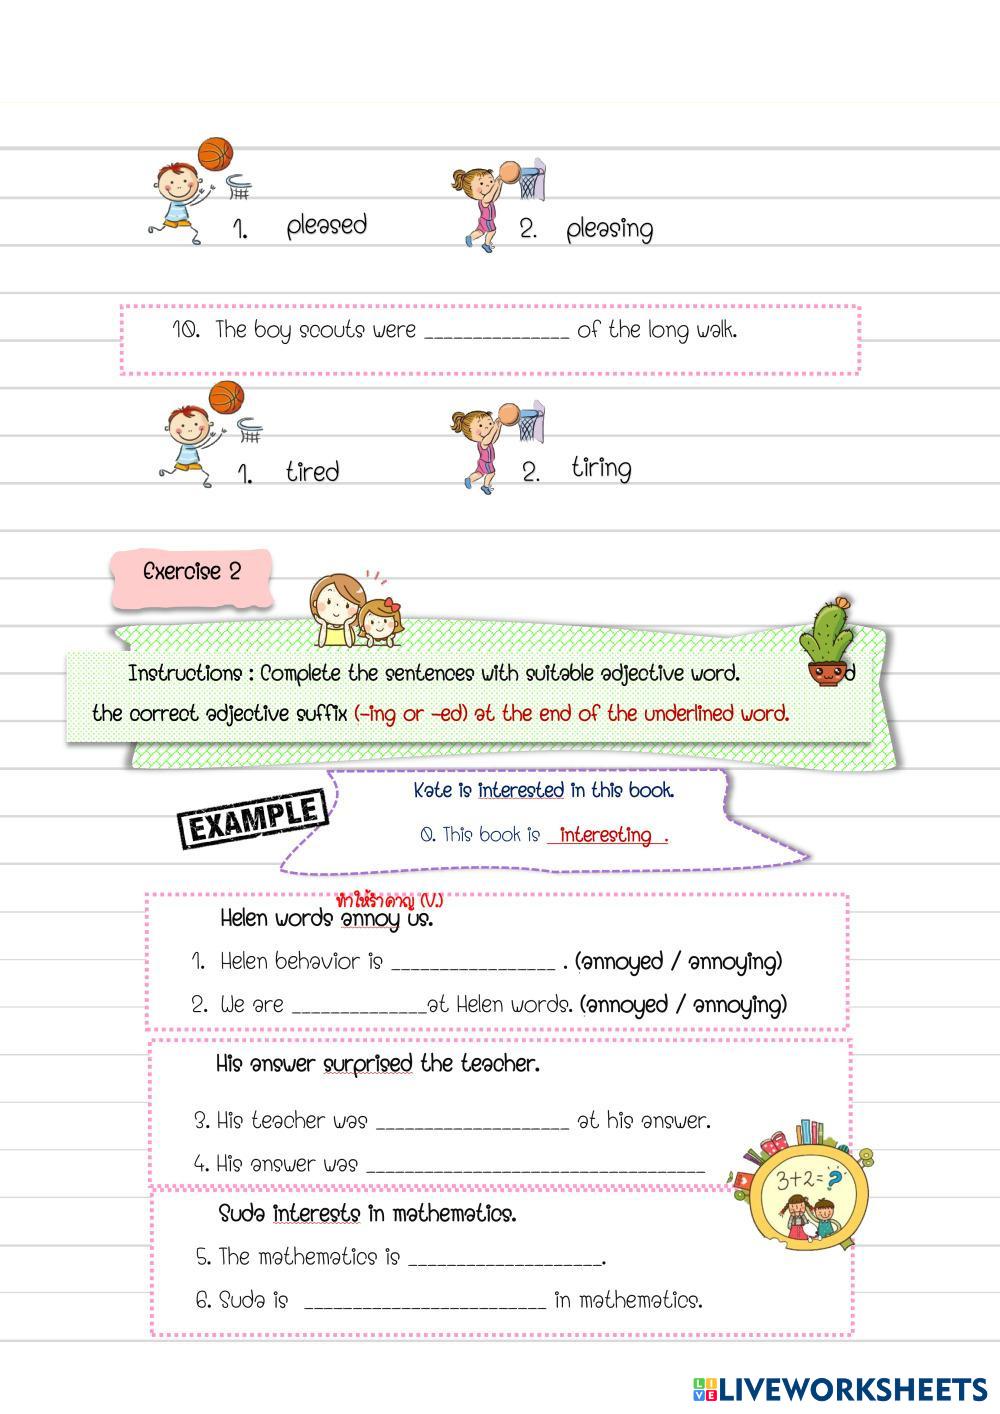 1. pleased 2. pleasing
10. The boy scouts were _______________ of the long walk.
1. tired 2. tiring
Exercise 2
Instructions : Complete the sentences with suitable adjective word. d
the correct adjective suffix (-ing or -ed) at the end of the underlined word.
EXAMPLE
Kate is interested in this book.
0. This book is interesting .
ทำให้รำคาญ (V.)
Helen words annoy us.
1. Helen behavior is _________________ . (annoyed / annoying)
2. We are ______________at Helen words. (annoyed / annoying)
His answer surprised the teacher.
3. His teacher was ____________________ at his answer.
4. His answer was ___________________________________
3+2=?
Suda interests in mathematics.
5. The mathematics is ____________________.
6. Suda is _________________________ in mathematics.
LIVE LIVEWORKSHEETS